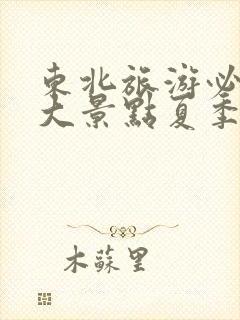 東北旅游必
大景點夏季
木蘇里